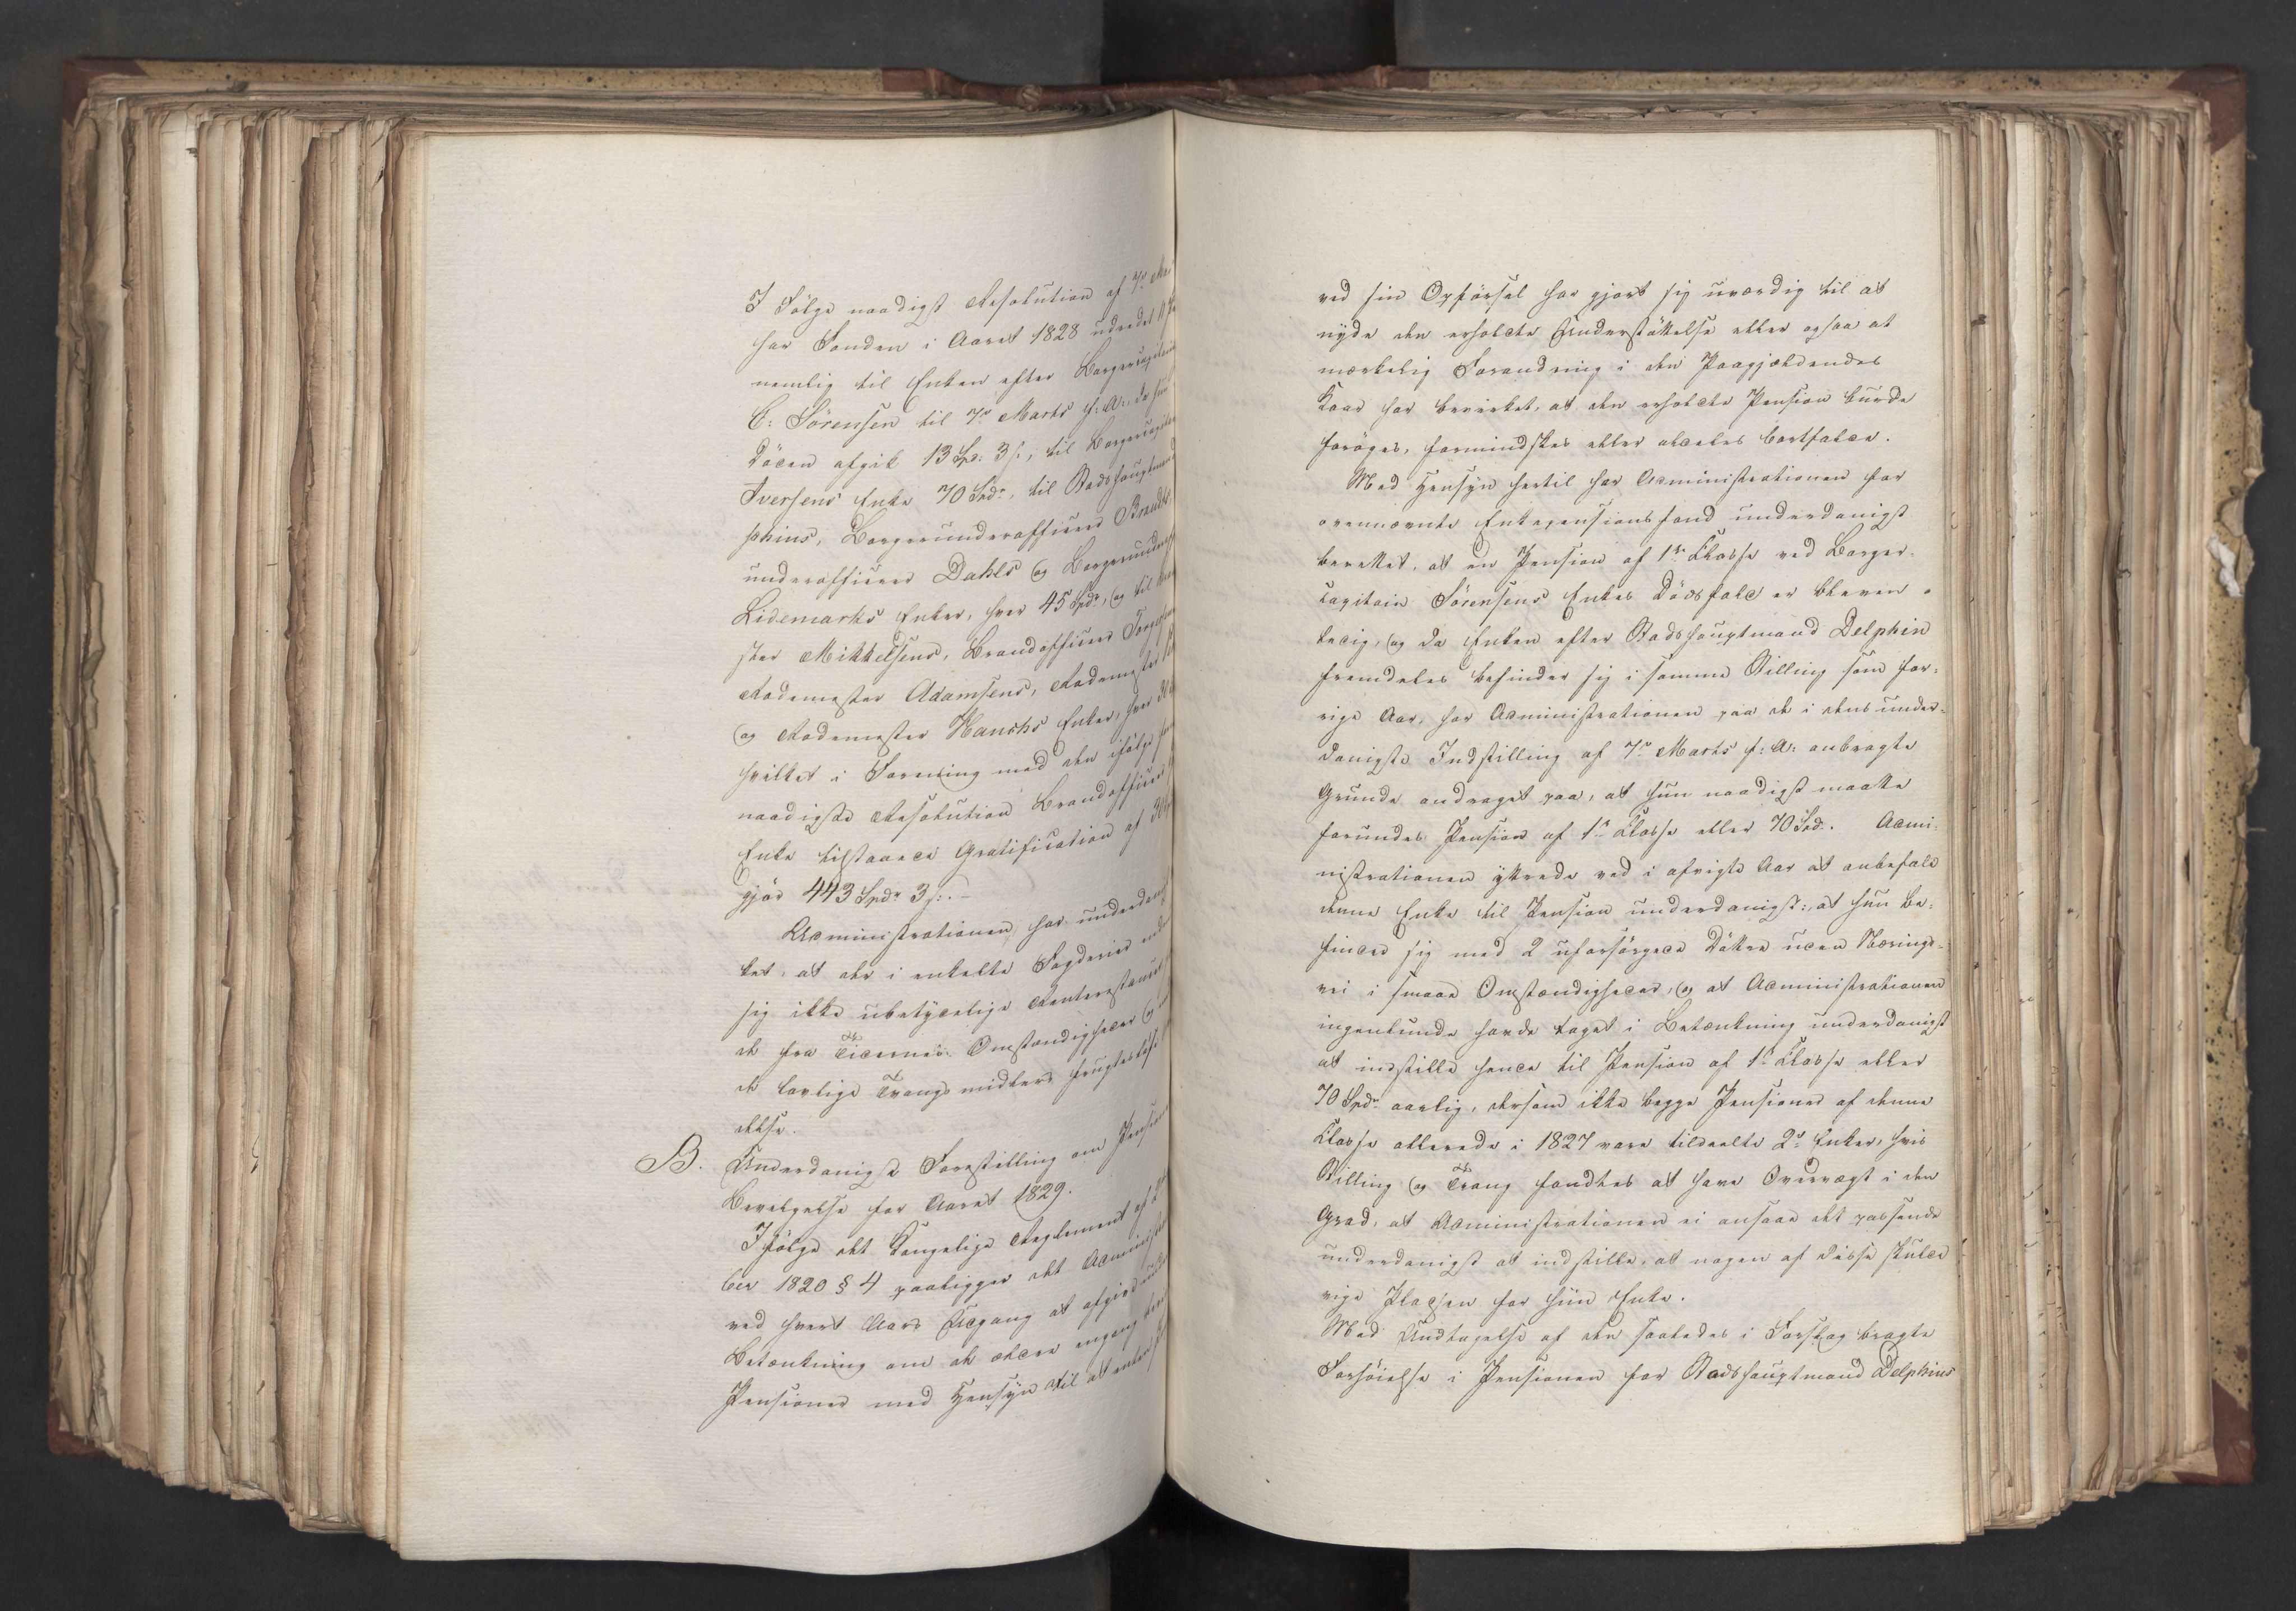 I Følge naadigst Resolution af 7de
har Fonden i Aaret 1828 udredet
nemlig til Enken efter Borgercapitain
C: Sörensen til 7de Marts f: A:, da hun
Döden afgik 13 Spd: 3 s:, til Borgercapitain
Iversens Enke 70 Spdr, til Stadshauptmand
phins, Borgerunderofficeer Brandts
underofficeer Dahls og Borgerunder
Lidemarks Enker, hver 45 Spdr, og til
ster Mikkelsens, Brandofficeer
Rodemester Adamsens, Rodemester
og Rodemester Hanchs Enker, hver
hvilket i Forening med den ifølge
naadigste Resolution Brandofficeer
Enke tilstaaede Gratification af 30
gjör 443 Spdr 3 s:.
Administrationen har underdanigst
ket, at der i enkelte Fogderier
sig ikke ubetydelige Rentererestancer
de fra Tidernes Omstændigheder og
de lovlige Tvangsmidlers frugtesløse
delse.
B. Underdanigst Forestilling om Pensions
Bevilgelse for Aaret 1829.
I følge det Kongelige Reglement af
ber 1820 § 4 paaligger det Administra
ved hvert Aars Udgang at afgive
Betænkning om de ældre engang
Pensioner med Hensyn til at enten
ved sin Opförsel har gjort sig uværdig til at
nyde den erholdte Understöttelse eller ogsaa at
mærkelig Forandring i den Paagjældendes
Kaar har bevirket, at den erholdte Pension burde
foröges, formindskes eller aldeles bortfalde.
Med Hensyn hertil har Administrationen for
ovennævnte Enkepensionsfond underdanigst
berettet, at en Pension af 1ste Klasse ved Borger-
capitain Sörensens Enkes Dödsfald er bleven
ledig, og da Enken efter Stadshauptmand Delphin
fremdeles befinder sig i samme Stilling som for-
rige Aar, har Administrationen paa de i dens under-
danigste Indstilling af 7de Marts f: A: anbragte
Grunde andraget paa, at hun naadigst maatte
forundes Pension af 1ste Klasse eller 70 Spd. Admi-
nistrationen yttrede ved i afvigte Aar at anbefale
denne Enke til Pension underdanigst: at hun be-
finder sig med 2 uforsörgede Döttre uden Nærings-
vei i smaae Omstændigheder, og at Administrationen
ingenlunde havde taget i Betænkning underdanigst
at indstille hende til Pension af 1ste Klasse eller
70 Spdr aarlig, dersom ikke begge Pensioner af denne
Klasse allerede i 1827 vare tildeelte 2de Enker, hvis
Stilling og Trang fandtes at have Overvægt i den
Grad, at Administrationen ei ansaae det passende
underdanigst at indstille, at nogen af disse skulde
vige Pladsen for hiin Enke.
Med Undtagelse af den saaledes i Forslag bragte
Forhöielse i Pensionen for Stadshauptmand Delphins